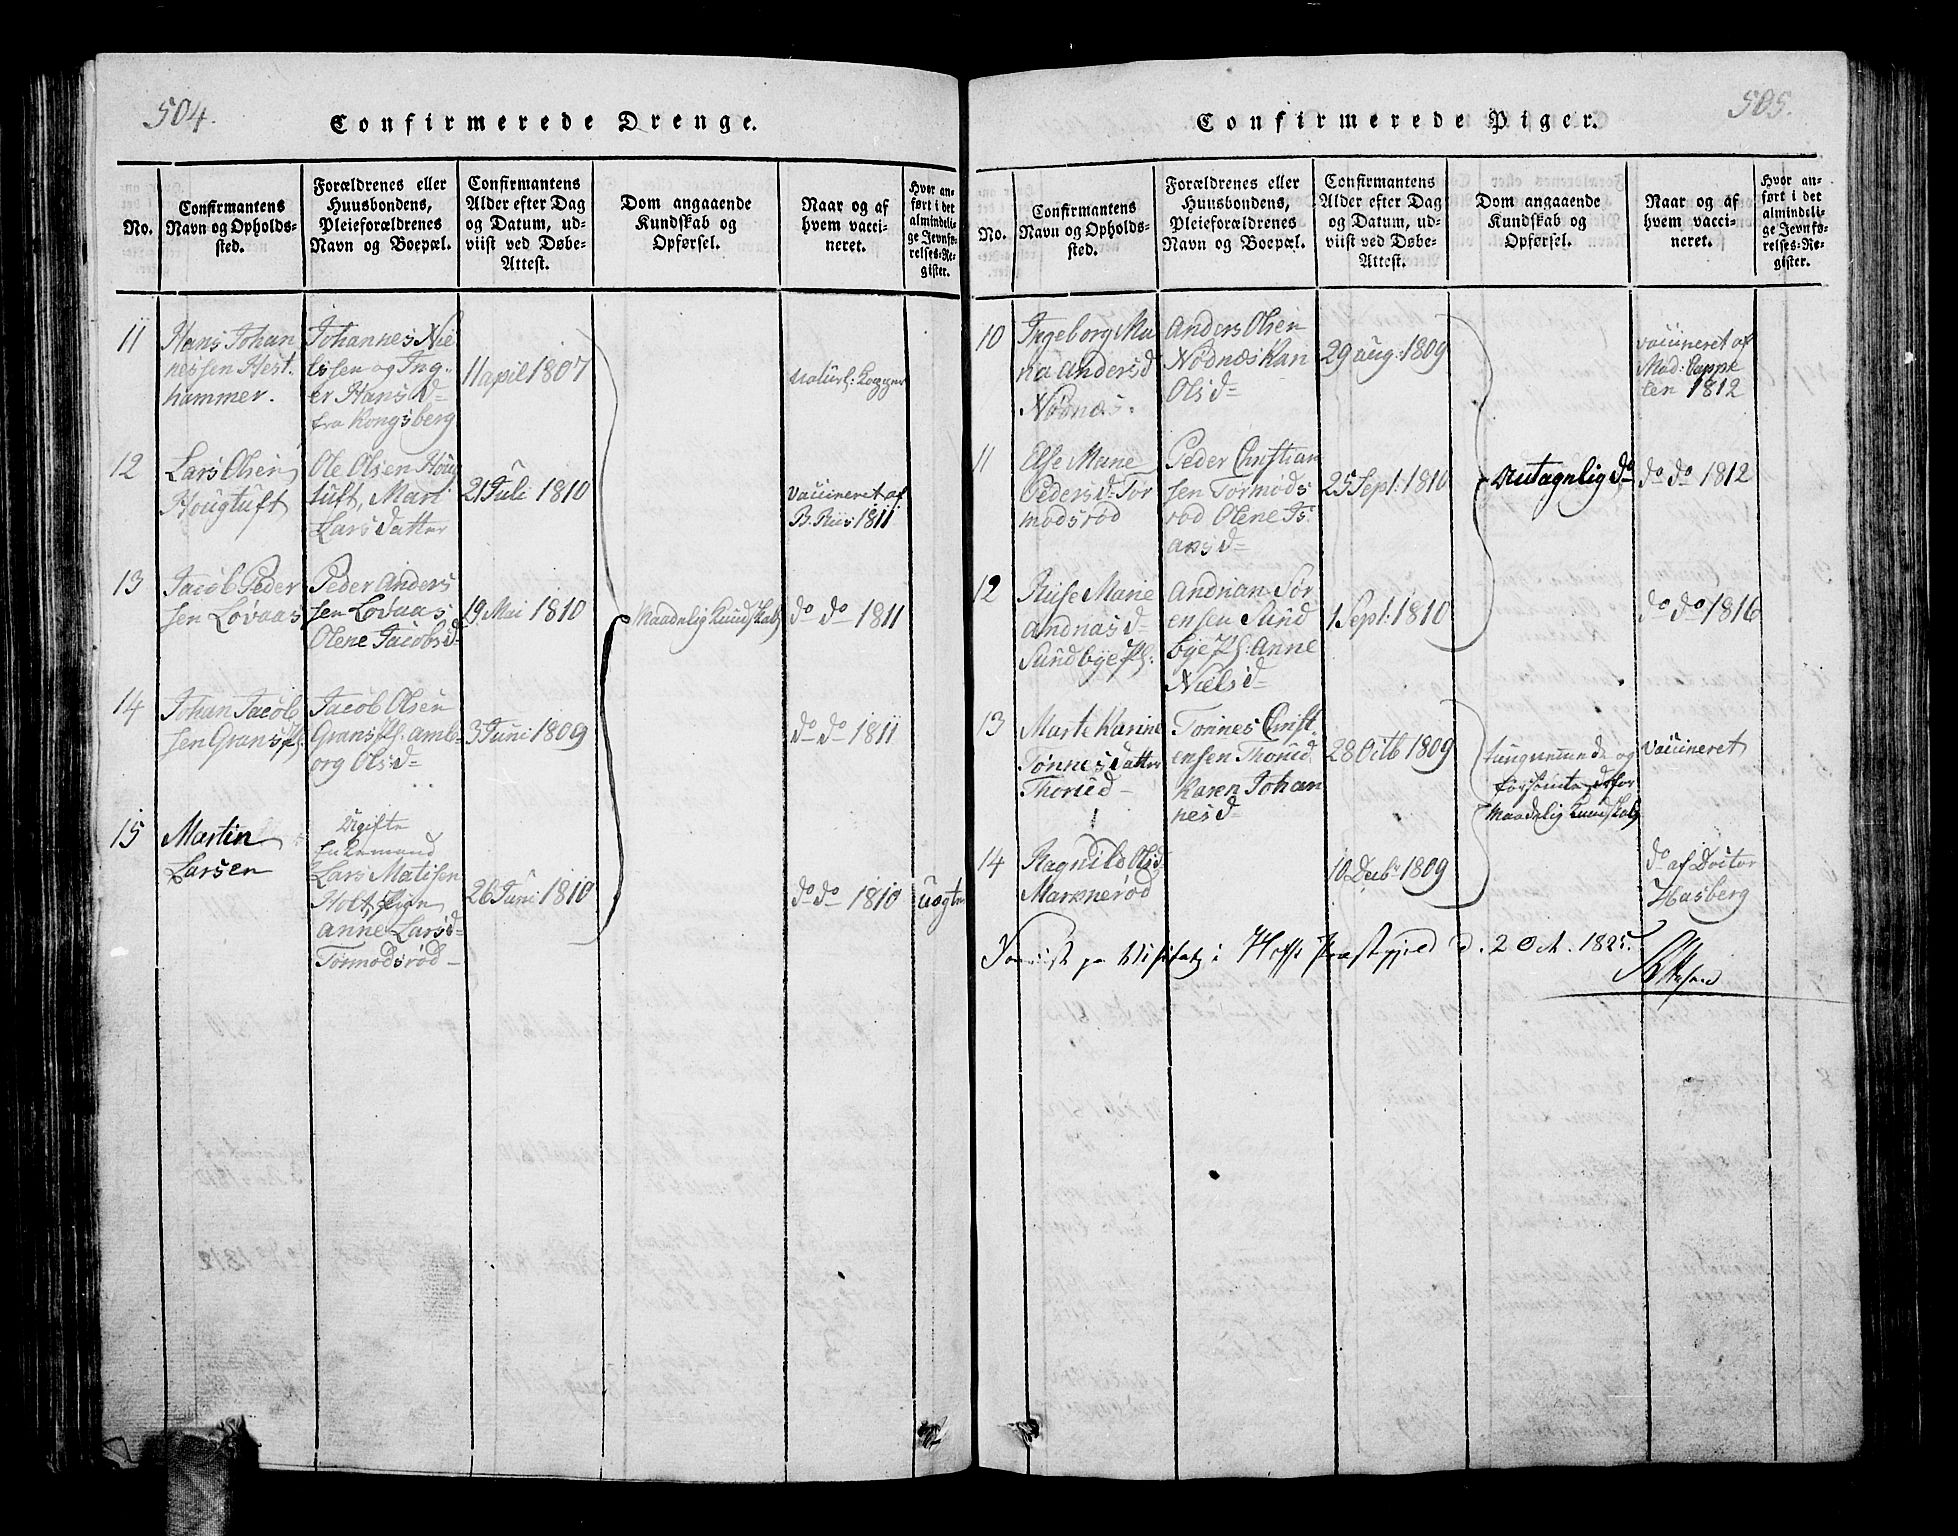 504.
Confirmerede Drenge.
No.
Confirmantens
Navn og Opholds-
sted.
Forældrenes eller
Huusbondens,
Pleieforældrenes
Navn og Boepæl.
Confirmantens
Alder efter Dag
og Datum, ud-
viist ved Døbe-
Attest.
Dom angaaende
Kundskab og
Opførsel.
Naar og af
hvem vacci-
neret.
Hvor an-
ført i det
almindeli-
ge Jevnfø-
relses-Re-
gister.
11
Hans Johan
nessen Hest
hammer.
Johannes Nie
lssen og Ing
er Hansd
fra Kongsberg
11 april 1807
naturl: Kopper
12
Lars Olsen
Hougtuft
Ole Olsen Houg
tuft, Mari
Larsdatter
21 Juli 1810
vaccineret af
B. Riis 1811
13
Jacob Peder
sen Lovaas
Peder Anders
sen Lovaas
Olene Jacobsd
19 Mai 1810
Maadelig Kundskab
do do 1811
14
Johan Jacob
sen Grans Pl.
Jacob Olsen
Grans Pl. amb
org Olsd
3 Juni 1809
do do 1811
15
Martin
Larsen
Ugifte
Enkemand
Lars Matisen
Holt,
anne Larsd
Tormodsrød
26 Juni 1810
do do 1810
uægte
505.
Confirmerede Piger.
No.
Confirmantens
Navn og Opholds-
sted.
Forældrenes eller
Huusbondens,
Pleieforældrenes
Navn og Boepæl.
Confirmantens
Alder efter Dag
og Datum, ud-
viist ved Døbe-
Attest.
Dom angaaende
Kundskab og
Opførsel.
Naar og af
hvem vacci-
neret.
Hvor an-
ført i det
almindeli-
ge Jevnfø-
relses-Re-
gister.
10
Ingeborg Ma
ria Andersd
Nødnæs.
Anders Olsen
Nødnæs Kari
Olsd
29 aug: 1809
vaccineret af
Mad: Cappe
len 1812
11
Else Marie
Pedersd Tor
modsrød
Peder Christian
sen Tormods
rød Olene Is
aksd
25 Sept: 1810
Antagelig do
do do 1812
12
Ruse Marie
Andriasd
Sundbye Pl:
Andrian Sør
ensen Sund
bye Pl: Anne
Nielsd
1 Sept: 1810
do do 1816
13
Marte Karine
Tønnesdatter
Thorud
Tønnes Christ
ensen Thorud
Karen Johan
nesd
28 Octb 1809
tungnemmede og
forsømte derfor
Maadelig Kundskab
vaccineret
14
Ragnild Olsd
Markerød
10 Decb 1809
do af Doctor
Hasberg
Foreviist paa Visitatz i Hoffs Præstegjeld d. 2 Oct. 1825.